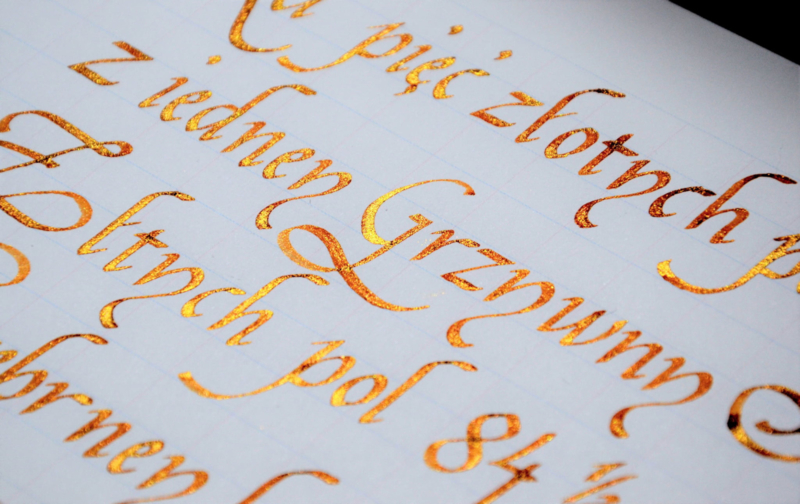 pięć złotych
z iedney Grzywny
ltych pol 84
brney